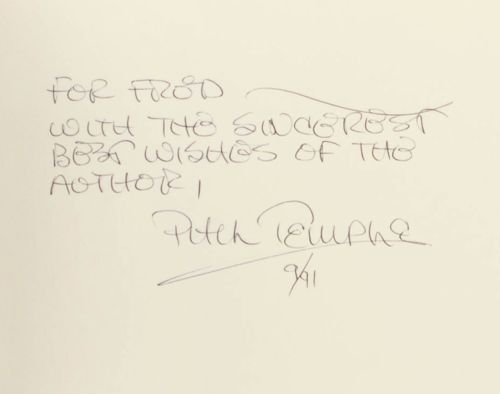 FOR FRED
WITH THE SINCEREST
BEST WISHES OF THE
AUTHOR,
Temple
9/91